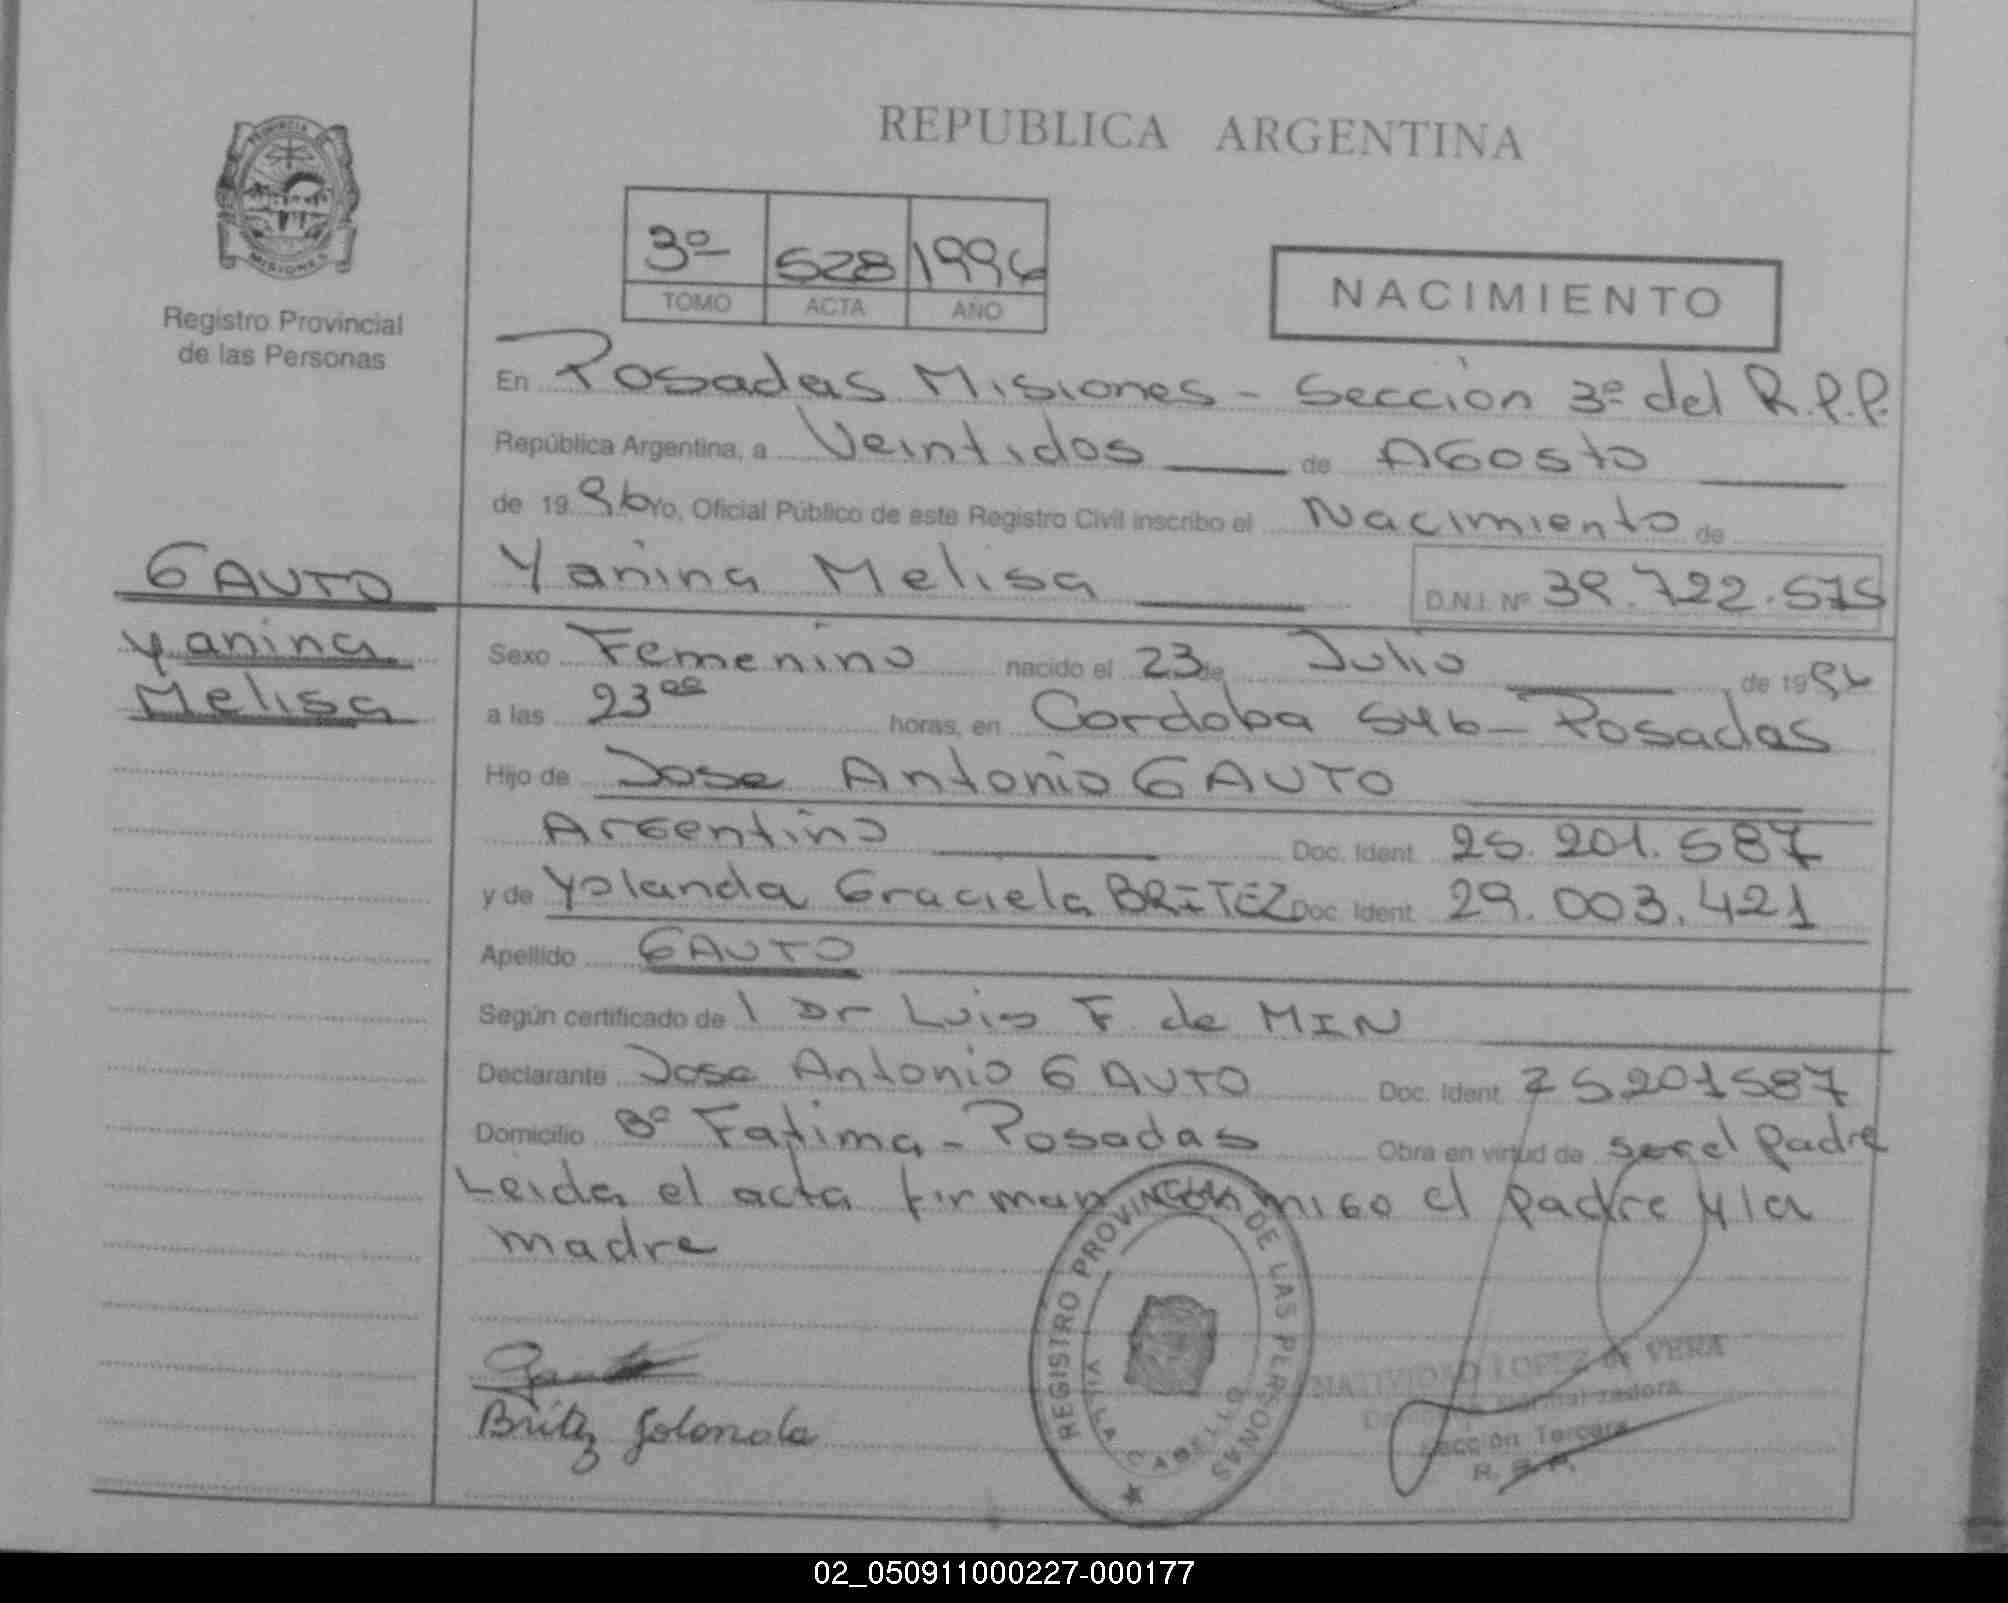 REPUBLICA ARGENTINA
PROVINCIA
MISIONES
Registro Provincial
de las Personas
3º 528 1996
TOMO ACTA AÑO
NACIMIENTO
En Posadas Misiones - Sección 3º del R.P.P.
República Argentina, a Veintidos de Agosto
de 1996 Yo, Oficial Público de este Registro Civil inscribo el Nacimiento de
Yanina Melisa D.N.I. Nº 39.722.575
GAUTO
Yanina
Melisa
Sexo Femenino nacido el 23 de Julio de 1996
a las 23 00 horas, en Cordoba 546 - Posadas
Hijo de Jose Antonio GAUTO
Argentino Doc. Ident 25.201.587
y de Yolanda Graciela BRITEZ Doc. Ident 29.003.421
Apellido GAUTO
Según certificado de l Dr Luis F. de MIN
Declarante Jose Antonio GAUTO Doc. Ident 25201587
Domicilio Bº Fatima - Posadas Obra en virtud de ser el padre
Leida el acta firman conmigo el padre y la
madre
REGISTRO PROVINCIAL DE LAS PERSONAS
VILLA CABELLO
Britez Yolanda
NATIVIDAD LOPEZ de VERA
Sección Tercera
R. P. P.
02_050911000227-000177